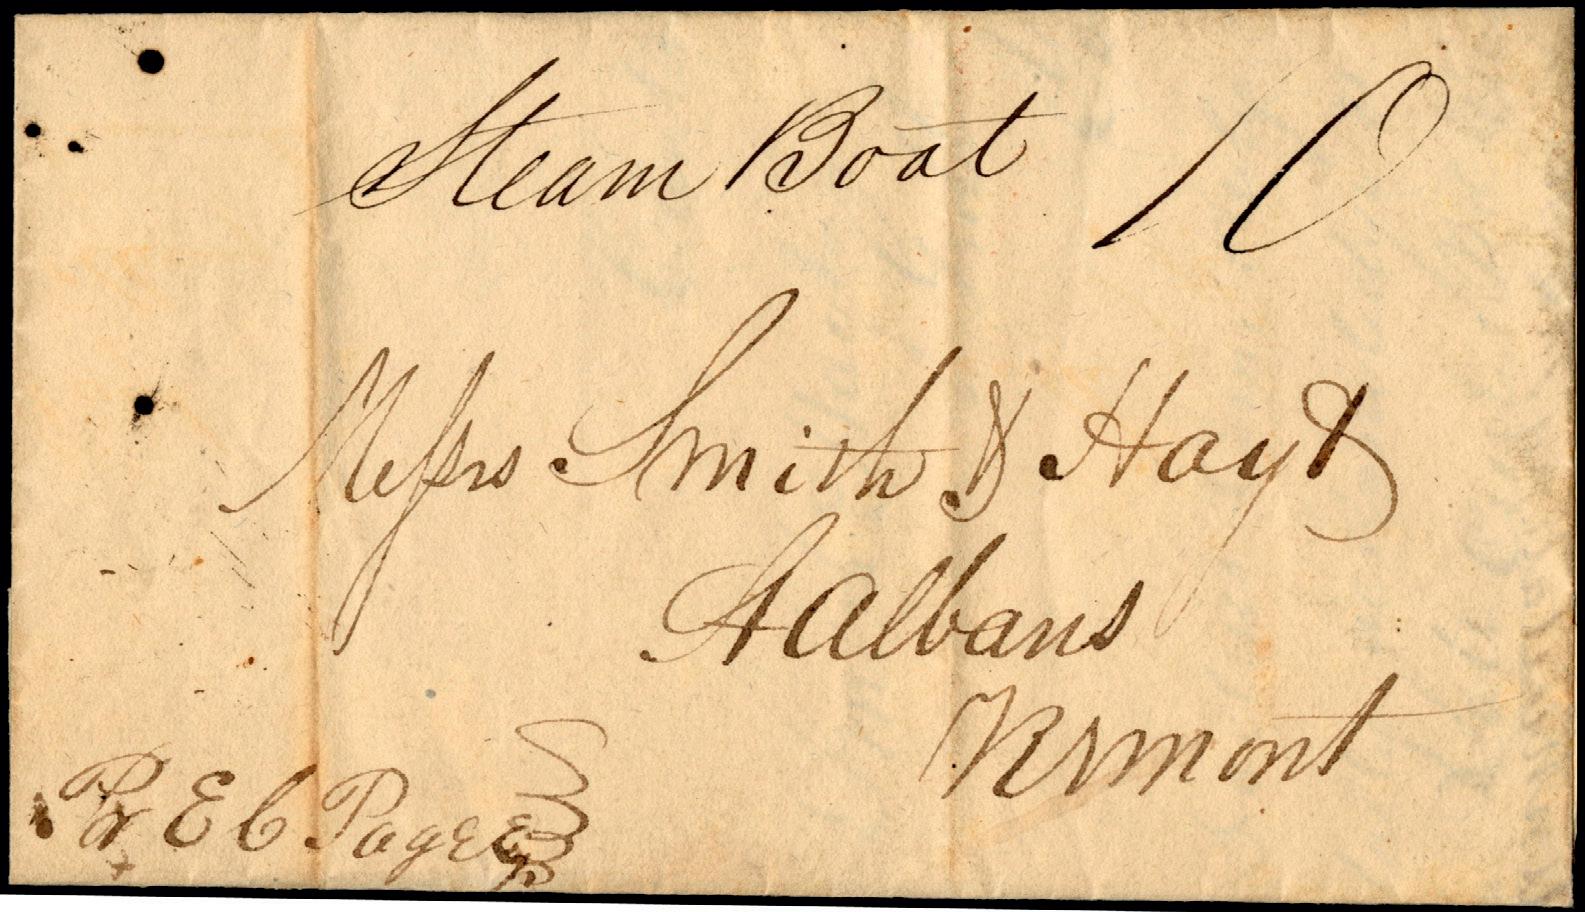 Steam Boat 10
Messrs Smith & Hoyt
St Albans
Vermont
Pr E C Page